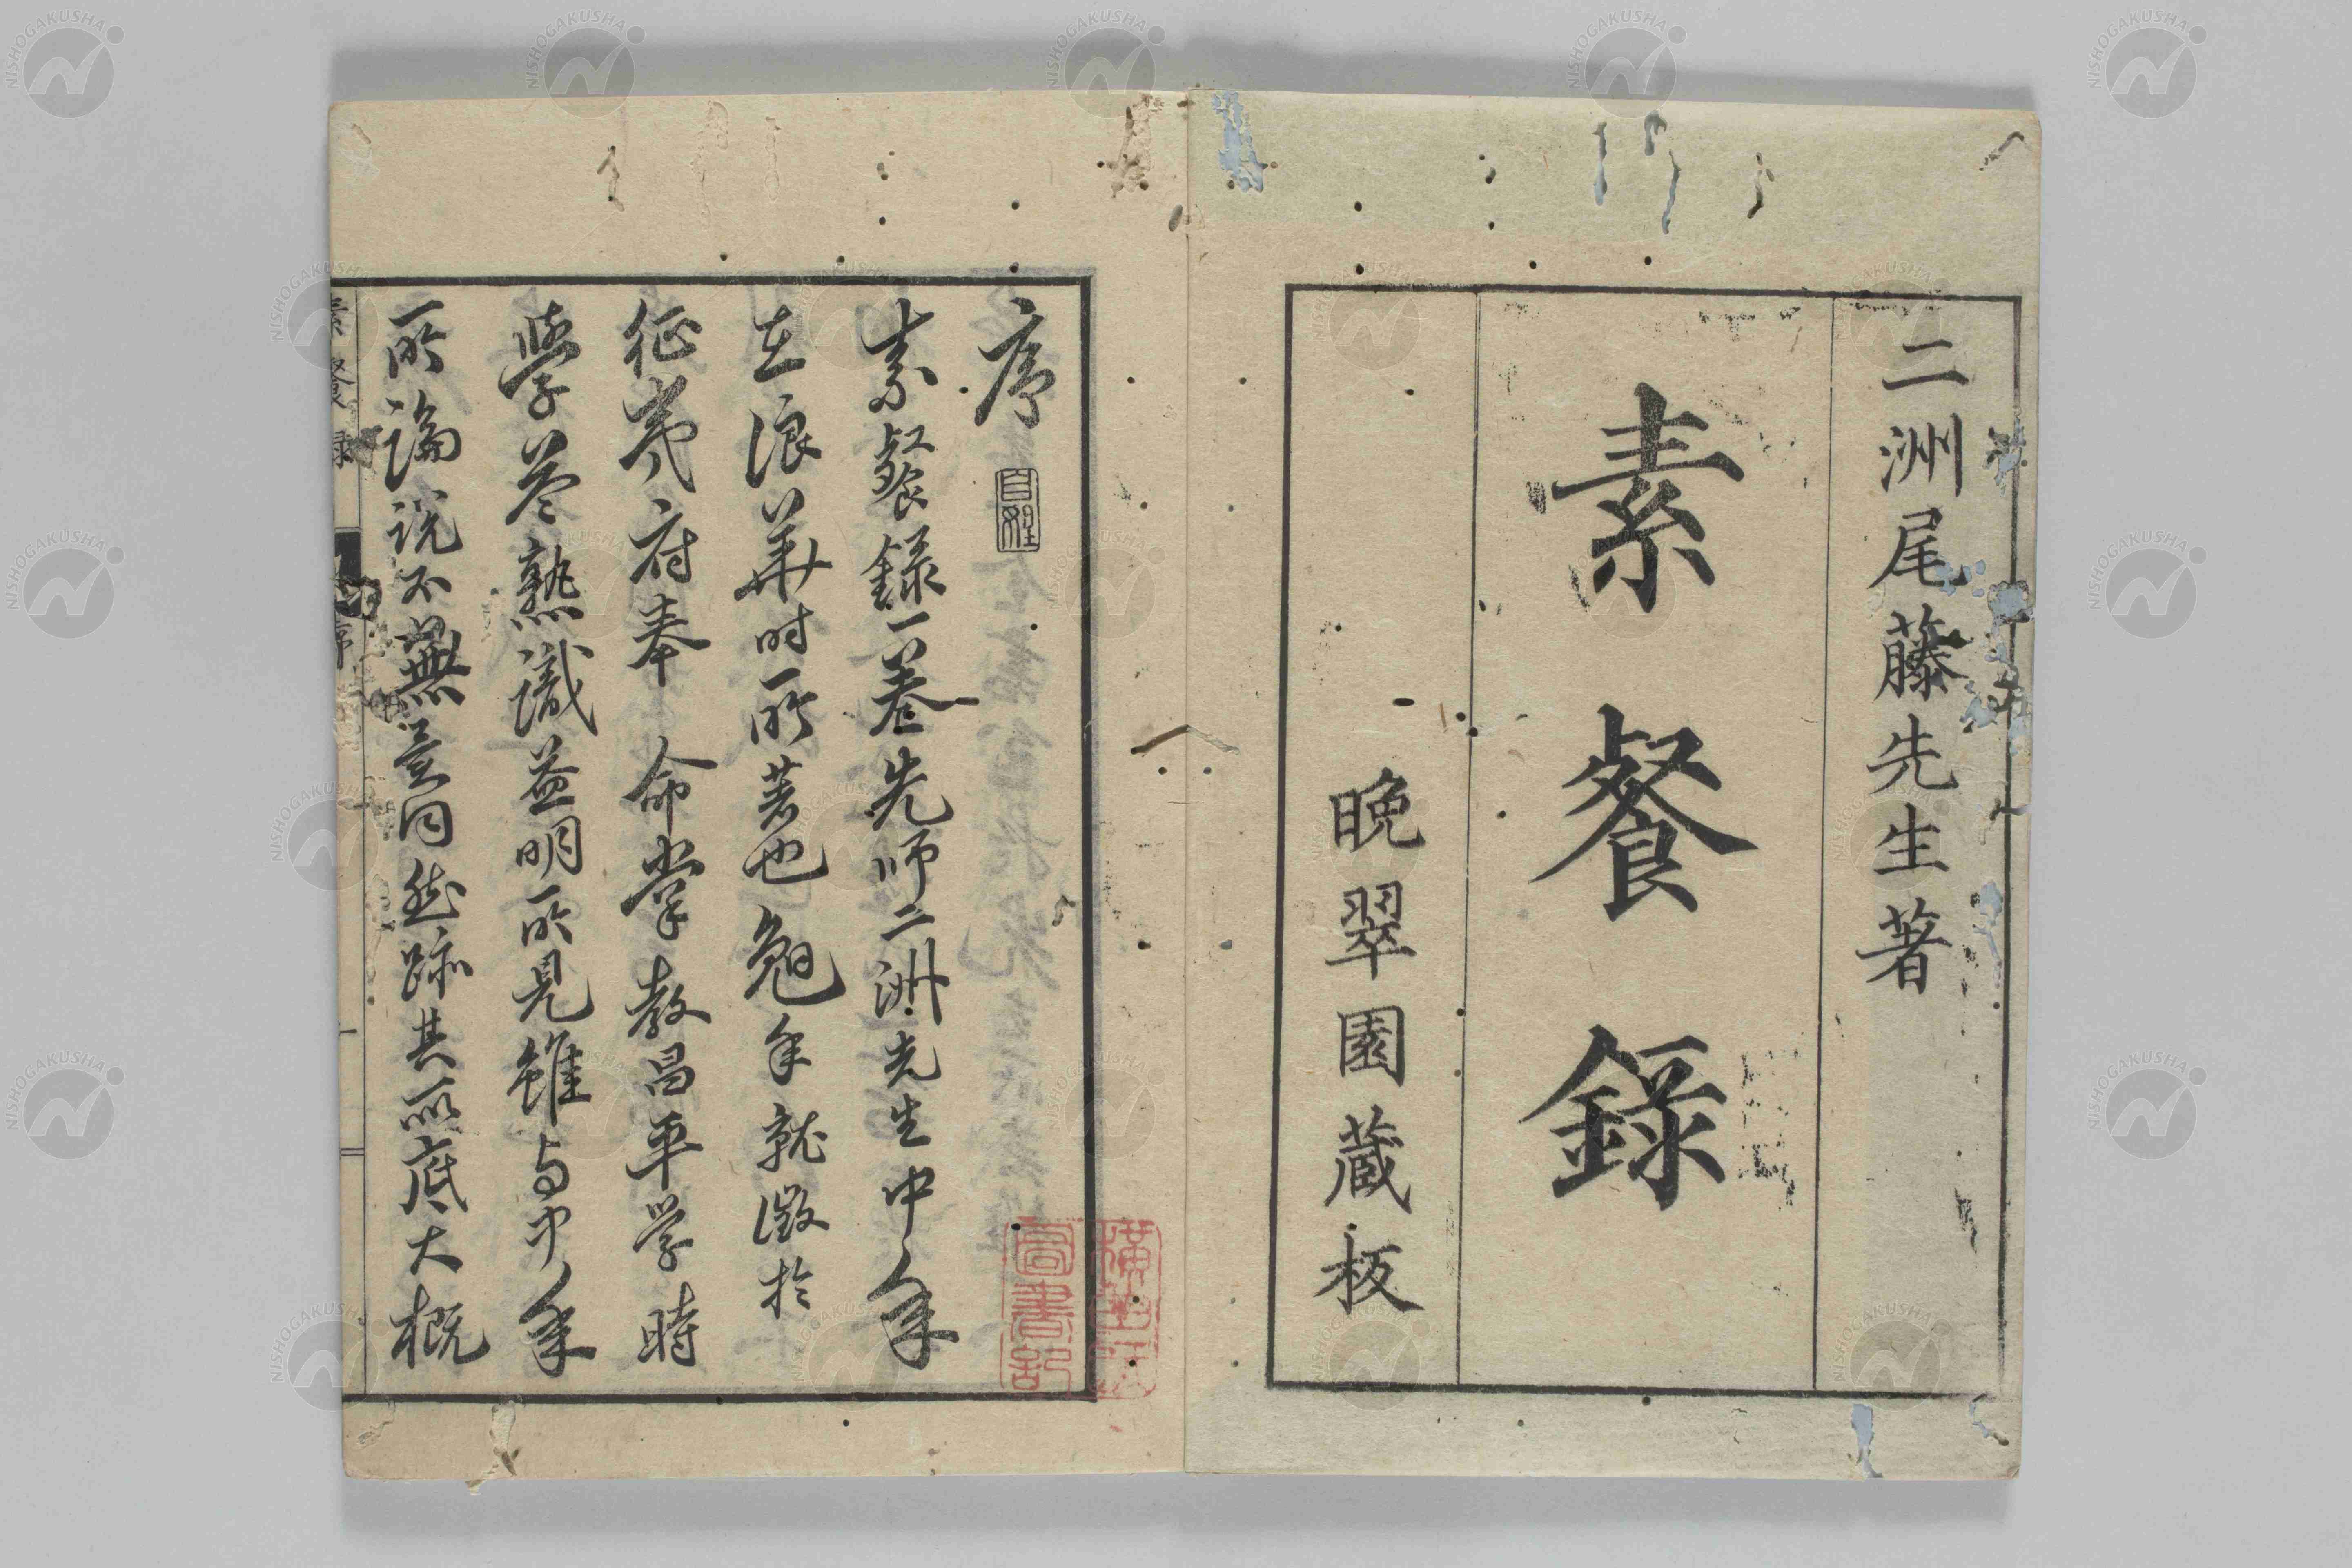 二洲尾藤先生著
素餐錄
晩翠園蔵板
序
素餐錄一卷先師二洲先生中年
在浪華時所著也勉年就徴於
征夷府奉 命掌教昌平学時
學益熟識益明所見雖与中年
所論説不無異同然跡其所底大概
素餐録
序
NISHOGAKUSHA